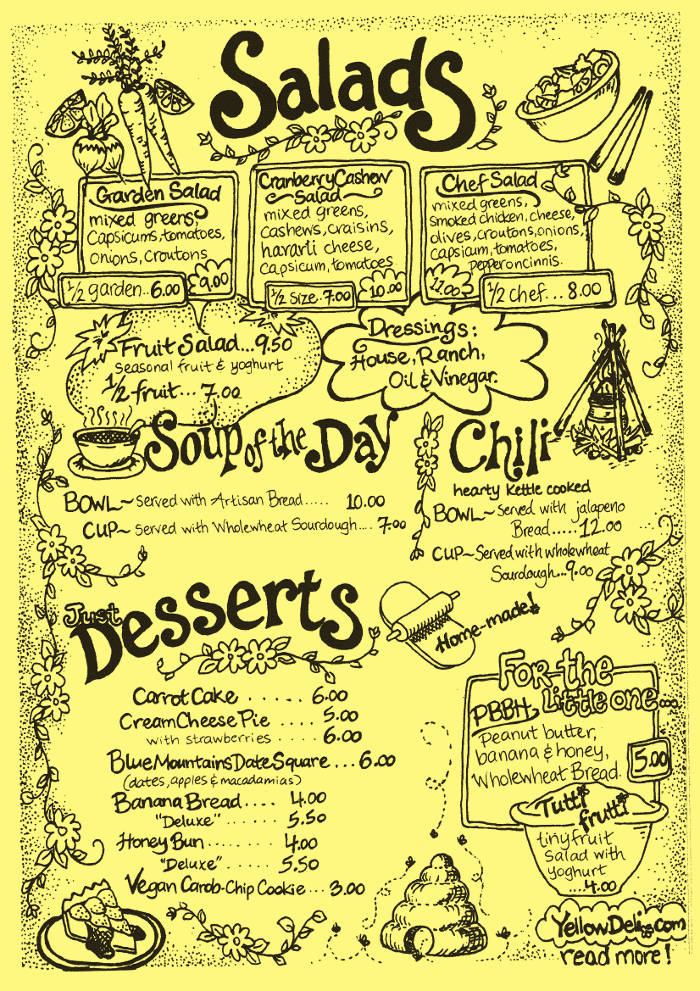 Salads
Garden Salad
mixed greens
Capsicums, tomatoes,
onions, croutons
9.00
1/2 garden.. 6.00
Cranberry Cashew
Salad
mixed greens,
cashews, craisins,
havarli cheese,
capsicum, tomatoes
10.00
1/2 size. 7.00
Chef Salad
mixed greens,
smoked chicken, cheese,
olives, croutons, onions,
capsicum, tomatoes,
pepperoncinnis.
11.00
1/2 chef... 8.00
Fruit Salad... 9.50
Seasonal fruit & yoghurt
1/2 fruit... 7.00
Dressings:
House, Ranch,
Oil & Vinegar.
Soup of the Day
BOWL~ Served with Artisan Bread..... 10.00
CUP~ Served with Wholewheat Sourdough.... 7.00
Chili
hearty kettle cooked
BOWL~ Served with jalapeno
Bread..... 12.00
CUP~ Served with wholewheat
Sourdough... 9.00
Just
Desserts
Home-made!
Carrot Cake ..... 6.00
Cream Cheese Pie .... 5.00
with strawberries .... 6.00
Blue Mountains Date Square ... 6.00
(dates, apples & macadamias)
Banana Bread.... 4.00
"Deluxe" ...... 5.50
Honey Bun....... 4.00
"Deluxe" ...... 5.50
Vegan Carob-Chip Cookie... 3.00
For the
Little one...
PBBH
Peanut butter,
banana & honey,
Wholewheat Bread.
5.00
Tutti
frutti
tiny fruit
Salad with
yoghurt
...4.00
YellowDeli.com
read more!